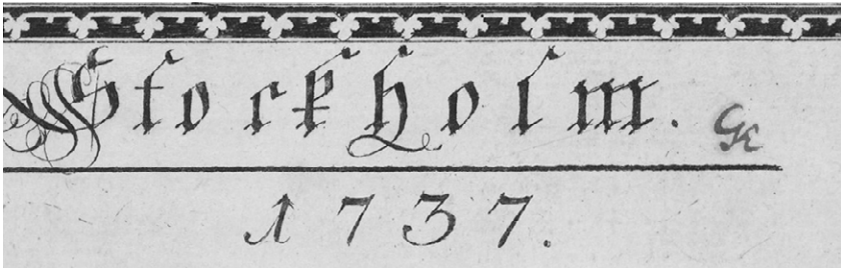 Stockholm.
1737.